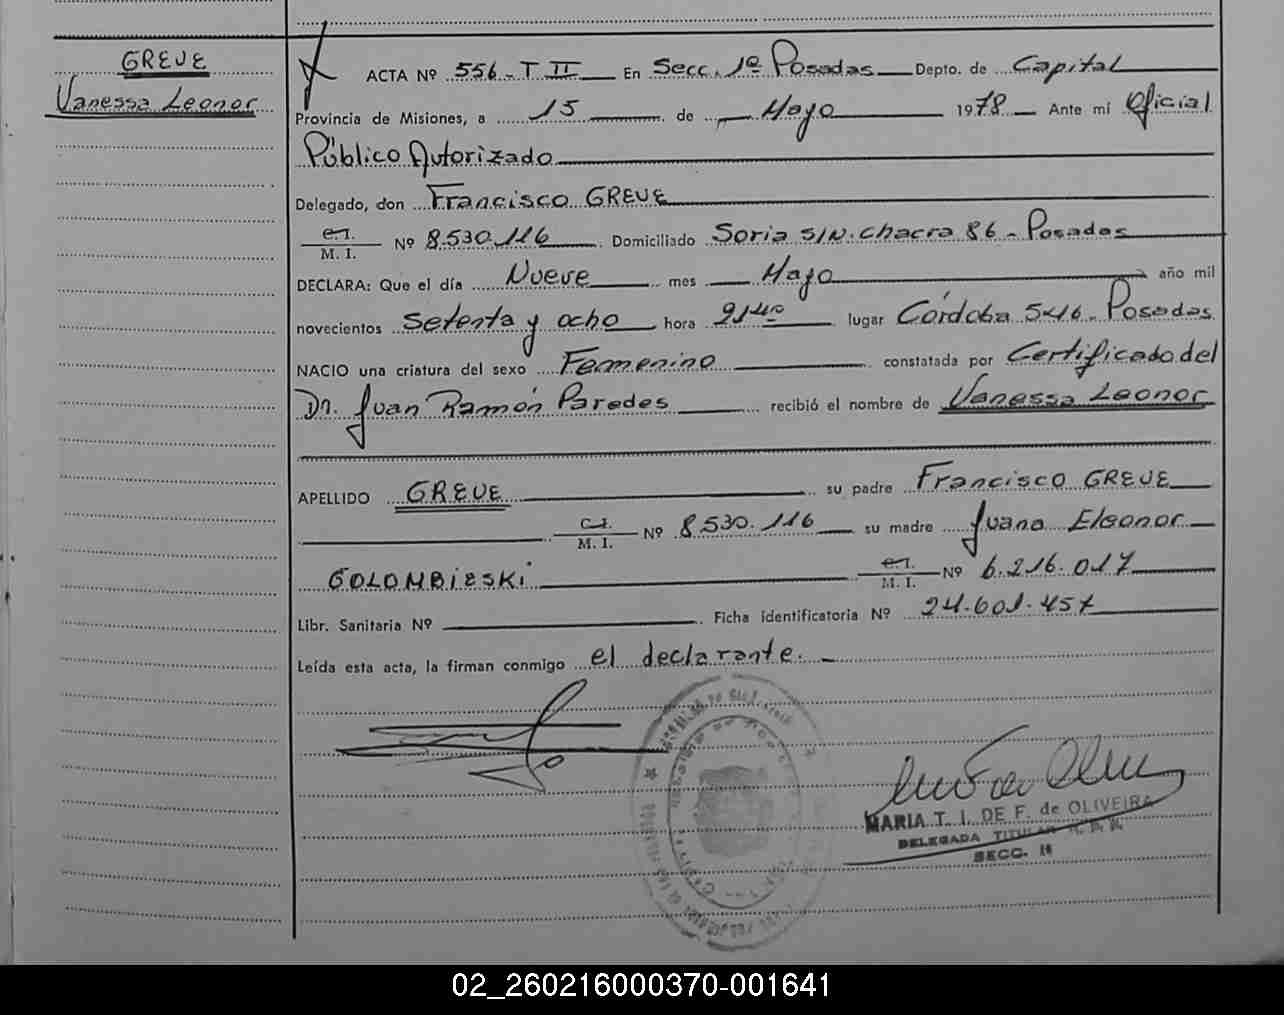 GREVE
Vanessa Leonor
ACTA Nº 556-T II En Secc. 1º Posadas Depto. de Capital
Provincia de Misiones, a 15 de Mayo 1978 Ante mí Oficial
Público Autorizado
Delegado, don Francisco GREVE
C.I. M. I. Nº 8.530.116 Domiciliado Soria S/N. chacra 86 - Posadas
DECLARA: Que el día Nueve mes Mayo año mil
novecientos Setenta y ocho hora 21 40 lugar Córdoba 5416 - Posadas
NACIO una criatura del sexo Femenino constatada por Certificado del
Dr. Juan Ramón Paredes recibió el nombre de Vanessa Leonor
APELLIDO GREVE su padre Francisco GREVE
C.I. M. I. Nº 8.530.116 su madre Juana Eleonor
GOLOMBIESKI C.I. M. I. Nº 6.216.017
Libr. Sanitaria Nº Ficha identificatoria Nº 24.601.457
Leída esta acta, la firman conmigo el declarante.
MARIA T. I. DE F. de OLIVEIRA
DELEGADA TITULAR
SECC.
02_260216000370-001641